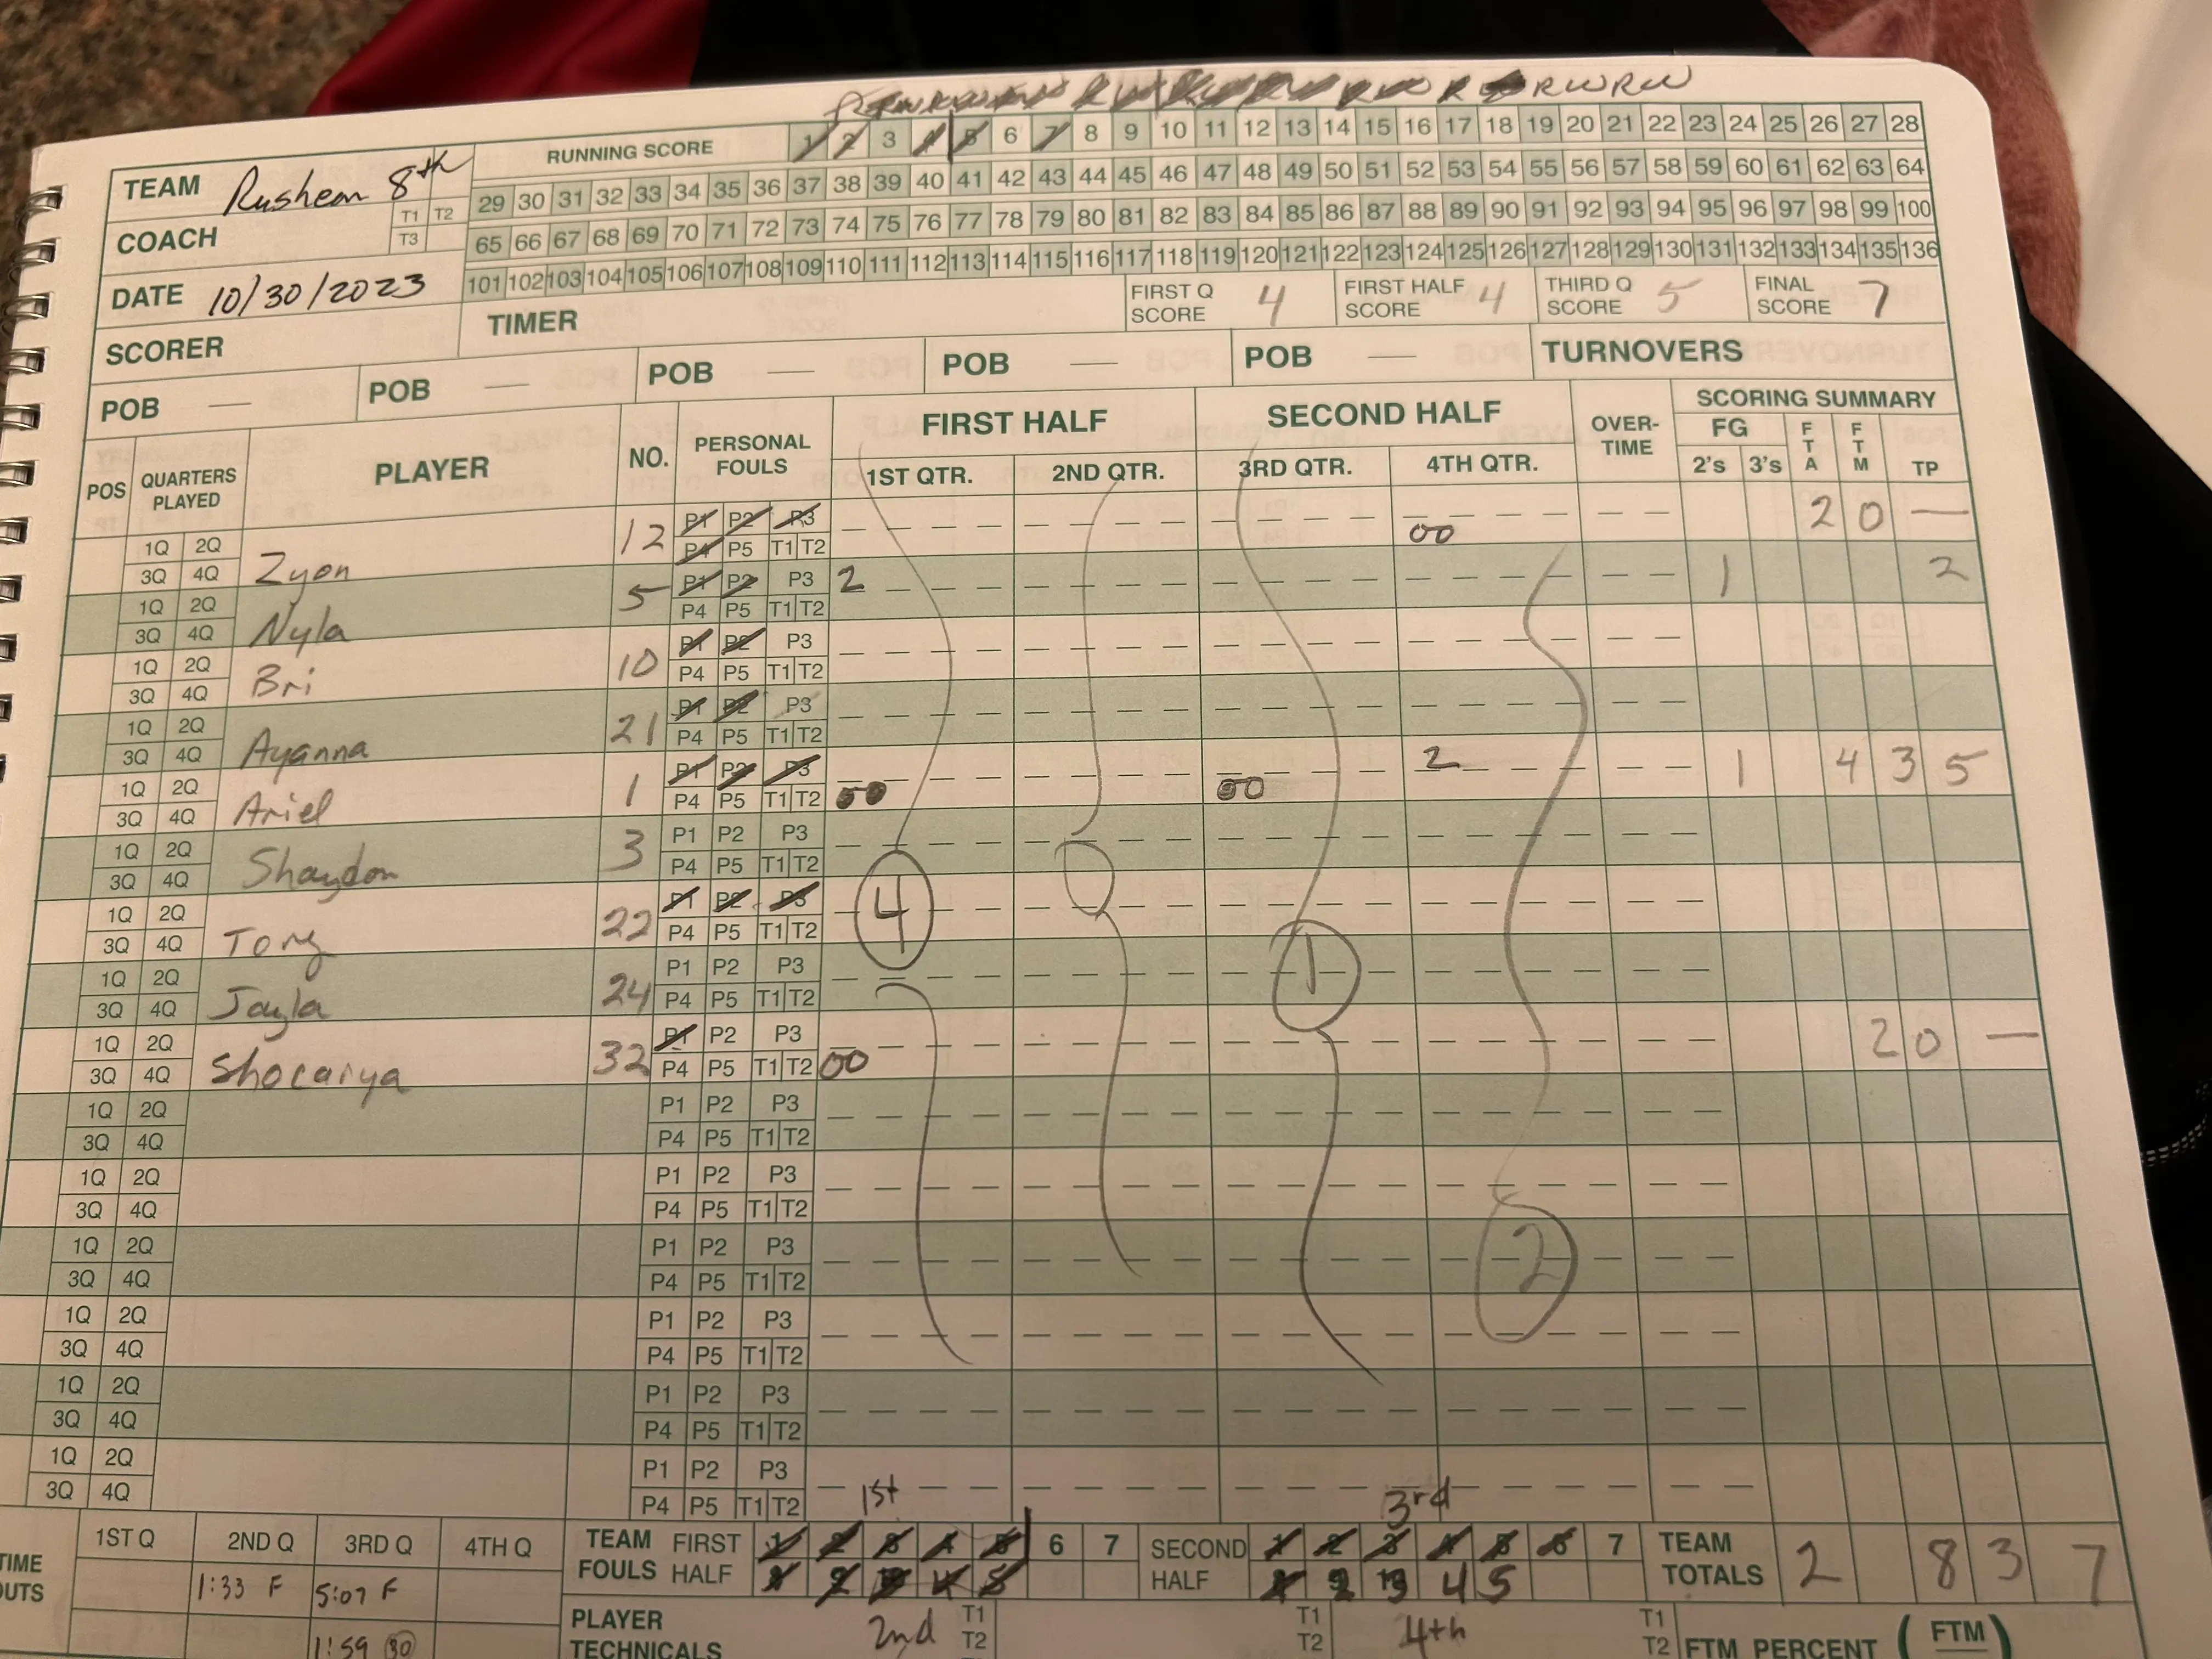 RUNNING SCORE 1 2 3 4 5 6 7 8 9 10 11 12 13 14 15 16 17 18 19 20 21 22 23 24 25 26 27 28
TEAM Rusheon 8th
29 30 31 32 33 34 35 36 37 38 39 40 41 42 43 44 45 46 47 48 49 50 51 52 53 54 55 56 57 58 59 60 61 62 63 64
T1 T2
COACH T3
65 66 67 68 69 70 71 72 73 74 75 76 77 78 79 80 81 82 83 84 85 86 87 88 89 90 91 92 93 94 95 96 97 98 99 100
101 102 103 104 105 106 107 108 109 110 111 112 113 114 115 116 117 118 119 120 121 122 123 124 125 126 127 128 129 130 131 132 133 134 135 136
DATE 10/30/2023
FIRST Q SCORE 4 FIRST HALF SCORE 4 THIRD Q SCORE 5 FINAL SCORE 7
SCORER TIMER
POB — POB — POB — POB — POB — TURNOVERS
POS QUARTERS PLAYED PLAYER NO. PERSONAL FOULS FIRST HALF SECOND HALF OVER-TIME SCORING SUMMARY
1ST QTR. 2ND QTR. 3RD QTR. 4TH QTR. FG 2's 3's FTA FTM TP
1Q 2Q Zyon 12 P1 P2 P3 00 2 0 —
3Q 4Q P4 P5 T1 T2
1Q 2Q Nyla 5 P1 P2 P3 2 1 2
3Q 4Q P4 P5 T1 T2
1Q 2Q Bri 10 P1 P2 P3
3Q 4Q P4 P5 T1 T2
1Q 2Q Ayanna 21 P1 P2 P3
3Q 4Q P4 P5 T1 T2
1Q 2Q Ariel 1 P1 P2 P3 00 00 2 1 4 3 5
3Q 4Q P4 P5 T1 T2
1Q 2Q Shaydon 3 P1 P2 P3
3Q 4Q P4 P5 T1 T2
1Q 2Q Tory 22 P1 P2 P3 4
3Q 4Q P4 P5 T1 T2
1Q 2Q Jayla 24 P1 P2 P3 1
3Q 4Q P4 P5 T1 T2
1Q 2Q Shocariya 32 P1 P2 P3 00 2 0 —
3Q 4Q P4 P5 T1 T2
1Q 2Q P1 P2 P3
3Q 4Q P4 P5 T1 T2
1Q 2Q P1 P2 P3
3Q 4Q P4 P5 T1 T2
1Q 2Q P1 P2 P3 2
3Q 4Q P4 P5 T1 T2
1Q 2Q P1 P2 P3
3Q 4Q P4 P5 T1 T2
1Q 2Q P1 P2 P3
3Q 4Q P4 P5 T1 T2
1Q 2Q P1 P2 P3
3Q 4Q P4 P5 T1 T2
1st 3rd
1ST Q 2ND Q 3RD Q 4TH Q TEAM FOULS FIRST HALF 1 2 3 4 5 6 7 SECOND HALF 1 2 3 4 5 6 7 TEAM TOTALS 2 8 3 7
1:33 F 5:07 F 4 5
1:59 30
PLAYER TECHNICALS 2nd T1 T2 T1 T2 4th T1 T2 FTM PERCENT (FTM)